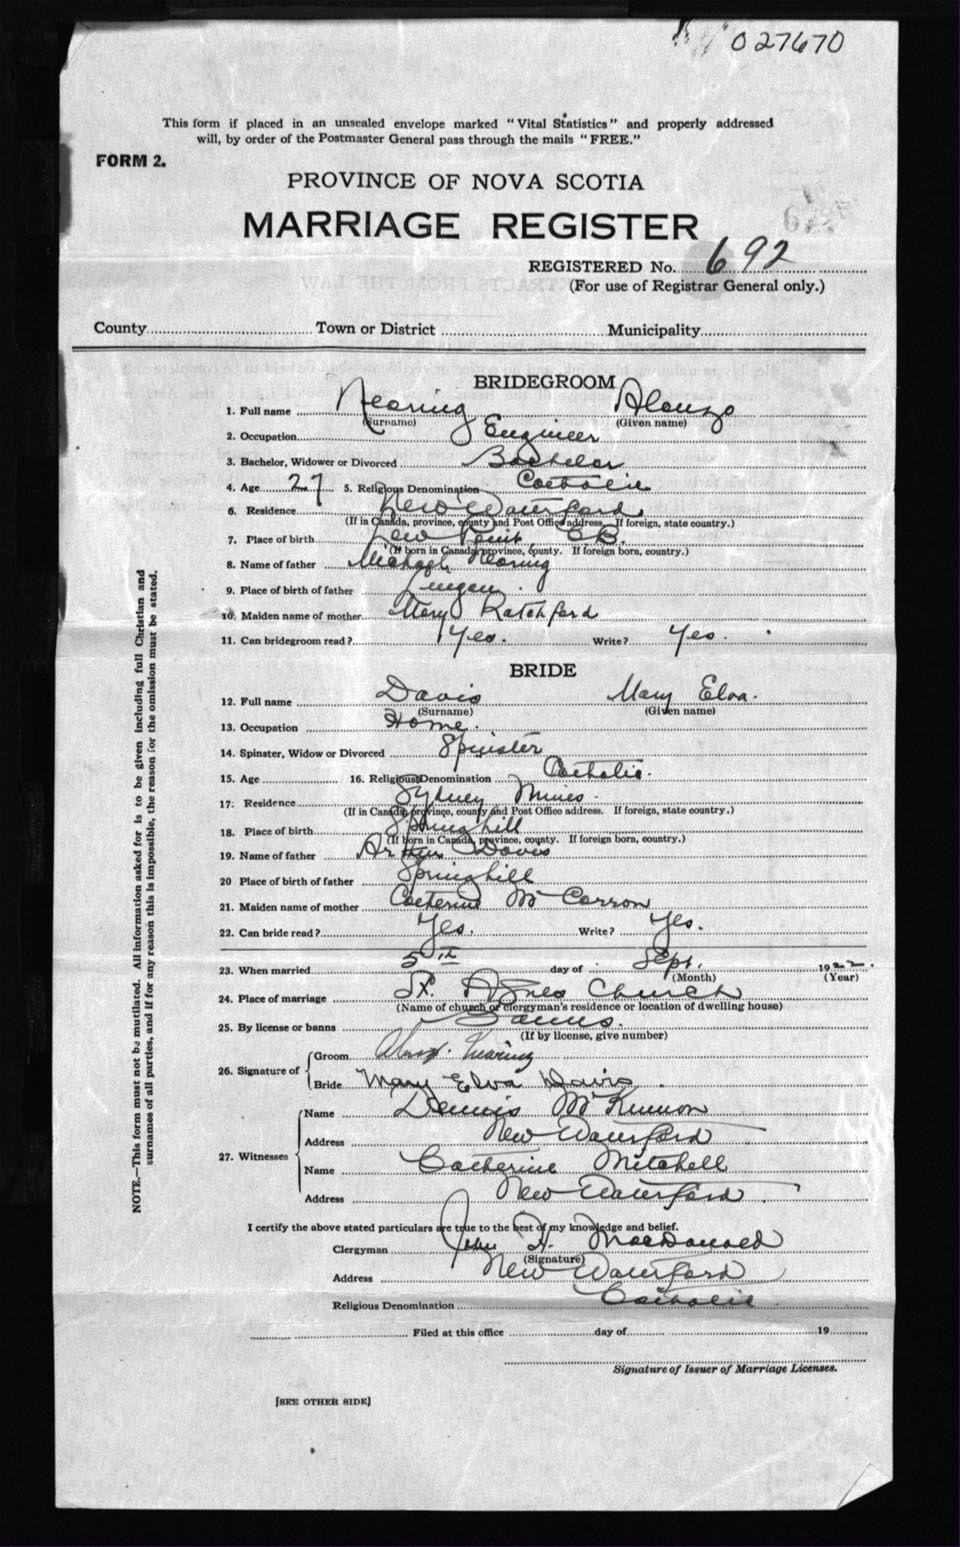 027670
This form if placed in an unsealed envelope marked "Vital Statistics" and properly addressed
will, by order of the Postmaster General pass through the mails "FREE."
FORM 2.
PROVINCE OF NOVA SCOTIA
MARRIAGE REGISTER
REGISTERED No. 692
(For use of Registrar General only.)
County Town or District Municipality
BRIDEGROOM
1. Full name Nearing Alonzo
(Surname) (Given name)
2. Occupation Engineer
3. Bachelor, Widower or Divorced Bachelor
4. Age 27 5. Religious Denomination Catholic
6. Residence New Waterford
(If in Canada, province, county and Post Office address. If foreign, state country.)
7. Place of birth Low Point C B.
(If born in Canada, province, county. If foreign born, country.)
8. Name of father Michael Nearing
9. Place of birth of father Lingan
10. Maiden name of mother Mary Ratchford
11. Can bridegroom read? Yes. Write? Yes.
BRIDE
12. Full name Davis Mary Elva.
(Surname) (Given name)
13. Occupation Home.
14. Spinster, Widow or Divorced Spinister
15. Age 16. Religious Denomination Catholic.
17. Residence Sydney Mines.
(If in Canada, province, county and Post Office address. If foreign, state country.)
18. Place of birth Springhill
(If born in Canada, province, county. If foreign born, country.)
19. Name of father Arthur Davis
20 Place of birth of father Springhill
21. Maiden name of mother Catherine McCarron
22. Can bride read? Yes. Write? Yes.
23. When married 5th day of Sept. 1922.
(Month) (Year)
24. Place of marriage St. Agnes Church
(Name of church or clergyman's residence or location of dwelling house)
25. By license or banns Banns.
(If by license, give number)
26. Signature of Groom Alonz. Nearing
Bride Mary Elva Davis
27. Witnesses Name Dennis McKinnon
Address New Waterford
Name Catherine Mitchell
Address New Waterford
I certify the above stated particulars are true to the best of my knowledge and belief.
Clergyman John H. MacDonald
(Signature)
Address New Waterford
Religious Denomination Catholic
Filed at this office day of 19
Signature of Issuer of Marriage Licenses.
[SEE OTHER SIDE]
NOTE.—This form must not be mutilated. All information asked for is to be given including full Christian and
surnames of all parties, and if for any reason this is impossible, the reason for the omission must be stated.